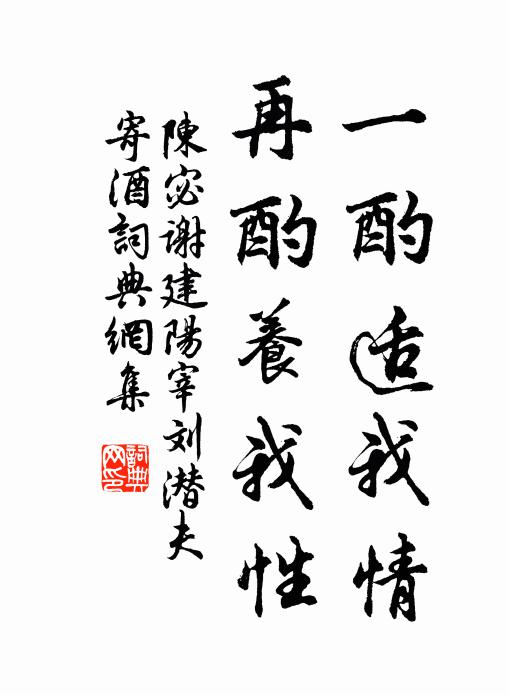 一酌适我情
再酌養我性
陳宓谢建陽宰刘潜夫
寄酒詞典網集
詞典
网印